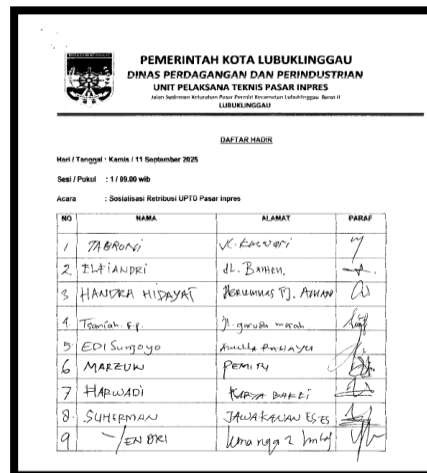 PEMERINTAH KOTA LUBUKLINGGAU
DINAS PERDAGANGAN DAN PERINDUSTRIAN
UNIT PELAKSANA TEKNIS PASAR INPRES
Jalan Sudirman Kelurahan Pasar Permiri Kecamatan Lubuklinggau Barat II
LUBUKLINGGAU
DAFTAR HADIR
Hari / Tanggal : Kamis / 11 September 2025
Sesi / Pukul : 1 / 09.00 wib
Acara : Sosialisasi Retribusi UPTD Pasar Inpres
NO NAMA ALAMAT PARAF
1 TABRONI JL.
2. ELFIANDRI JL.
3 HANDRA HIDAYAT Perumnas PJ.
4. JL. garuda merah
5 EDI Sunjoyo
6 MARZUKI PEMIRI
7 HARWADI KARYA BAKTI
8. SUHERMAN JAWA KANAN
9 YENDRI